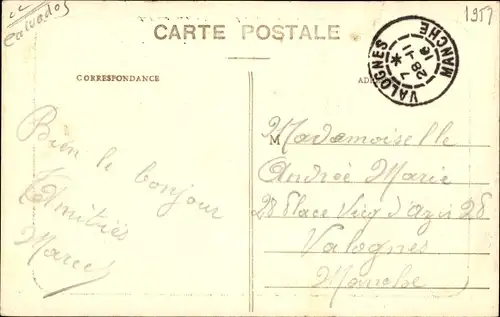 Calvados
CARTE POSTALE
1957
VALOGNES
MANCHE
7 *
28 -11
16
CORRESPONDANCE
Bien le bonjour
Amitiés
Marcel
M
Mademoiselle
Andrée Marie
28 place Vicq d'Azir 28
Valognes
Manche